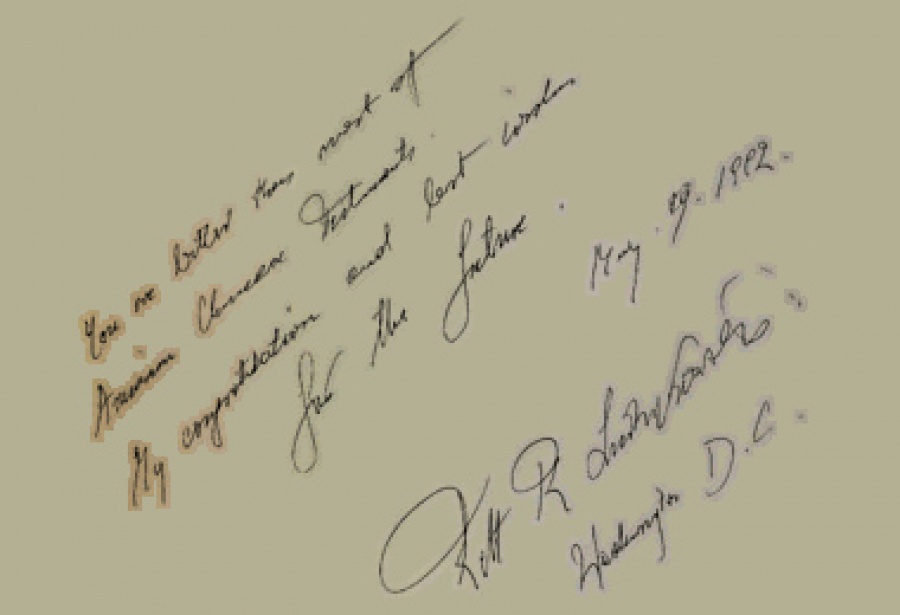 You are better than most of
American Chinese Restaurants.
My congratulation and best wishes
for the future.
May. 29. 1992.
R
Washington D.C.